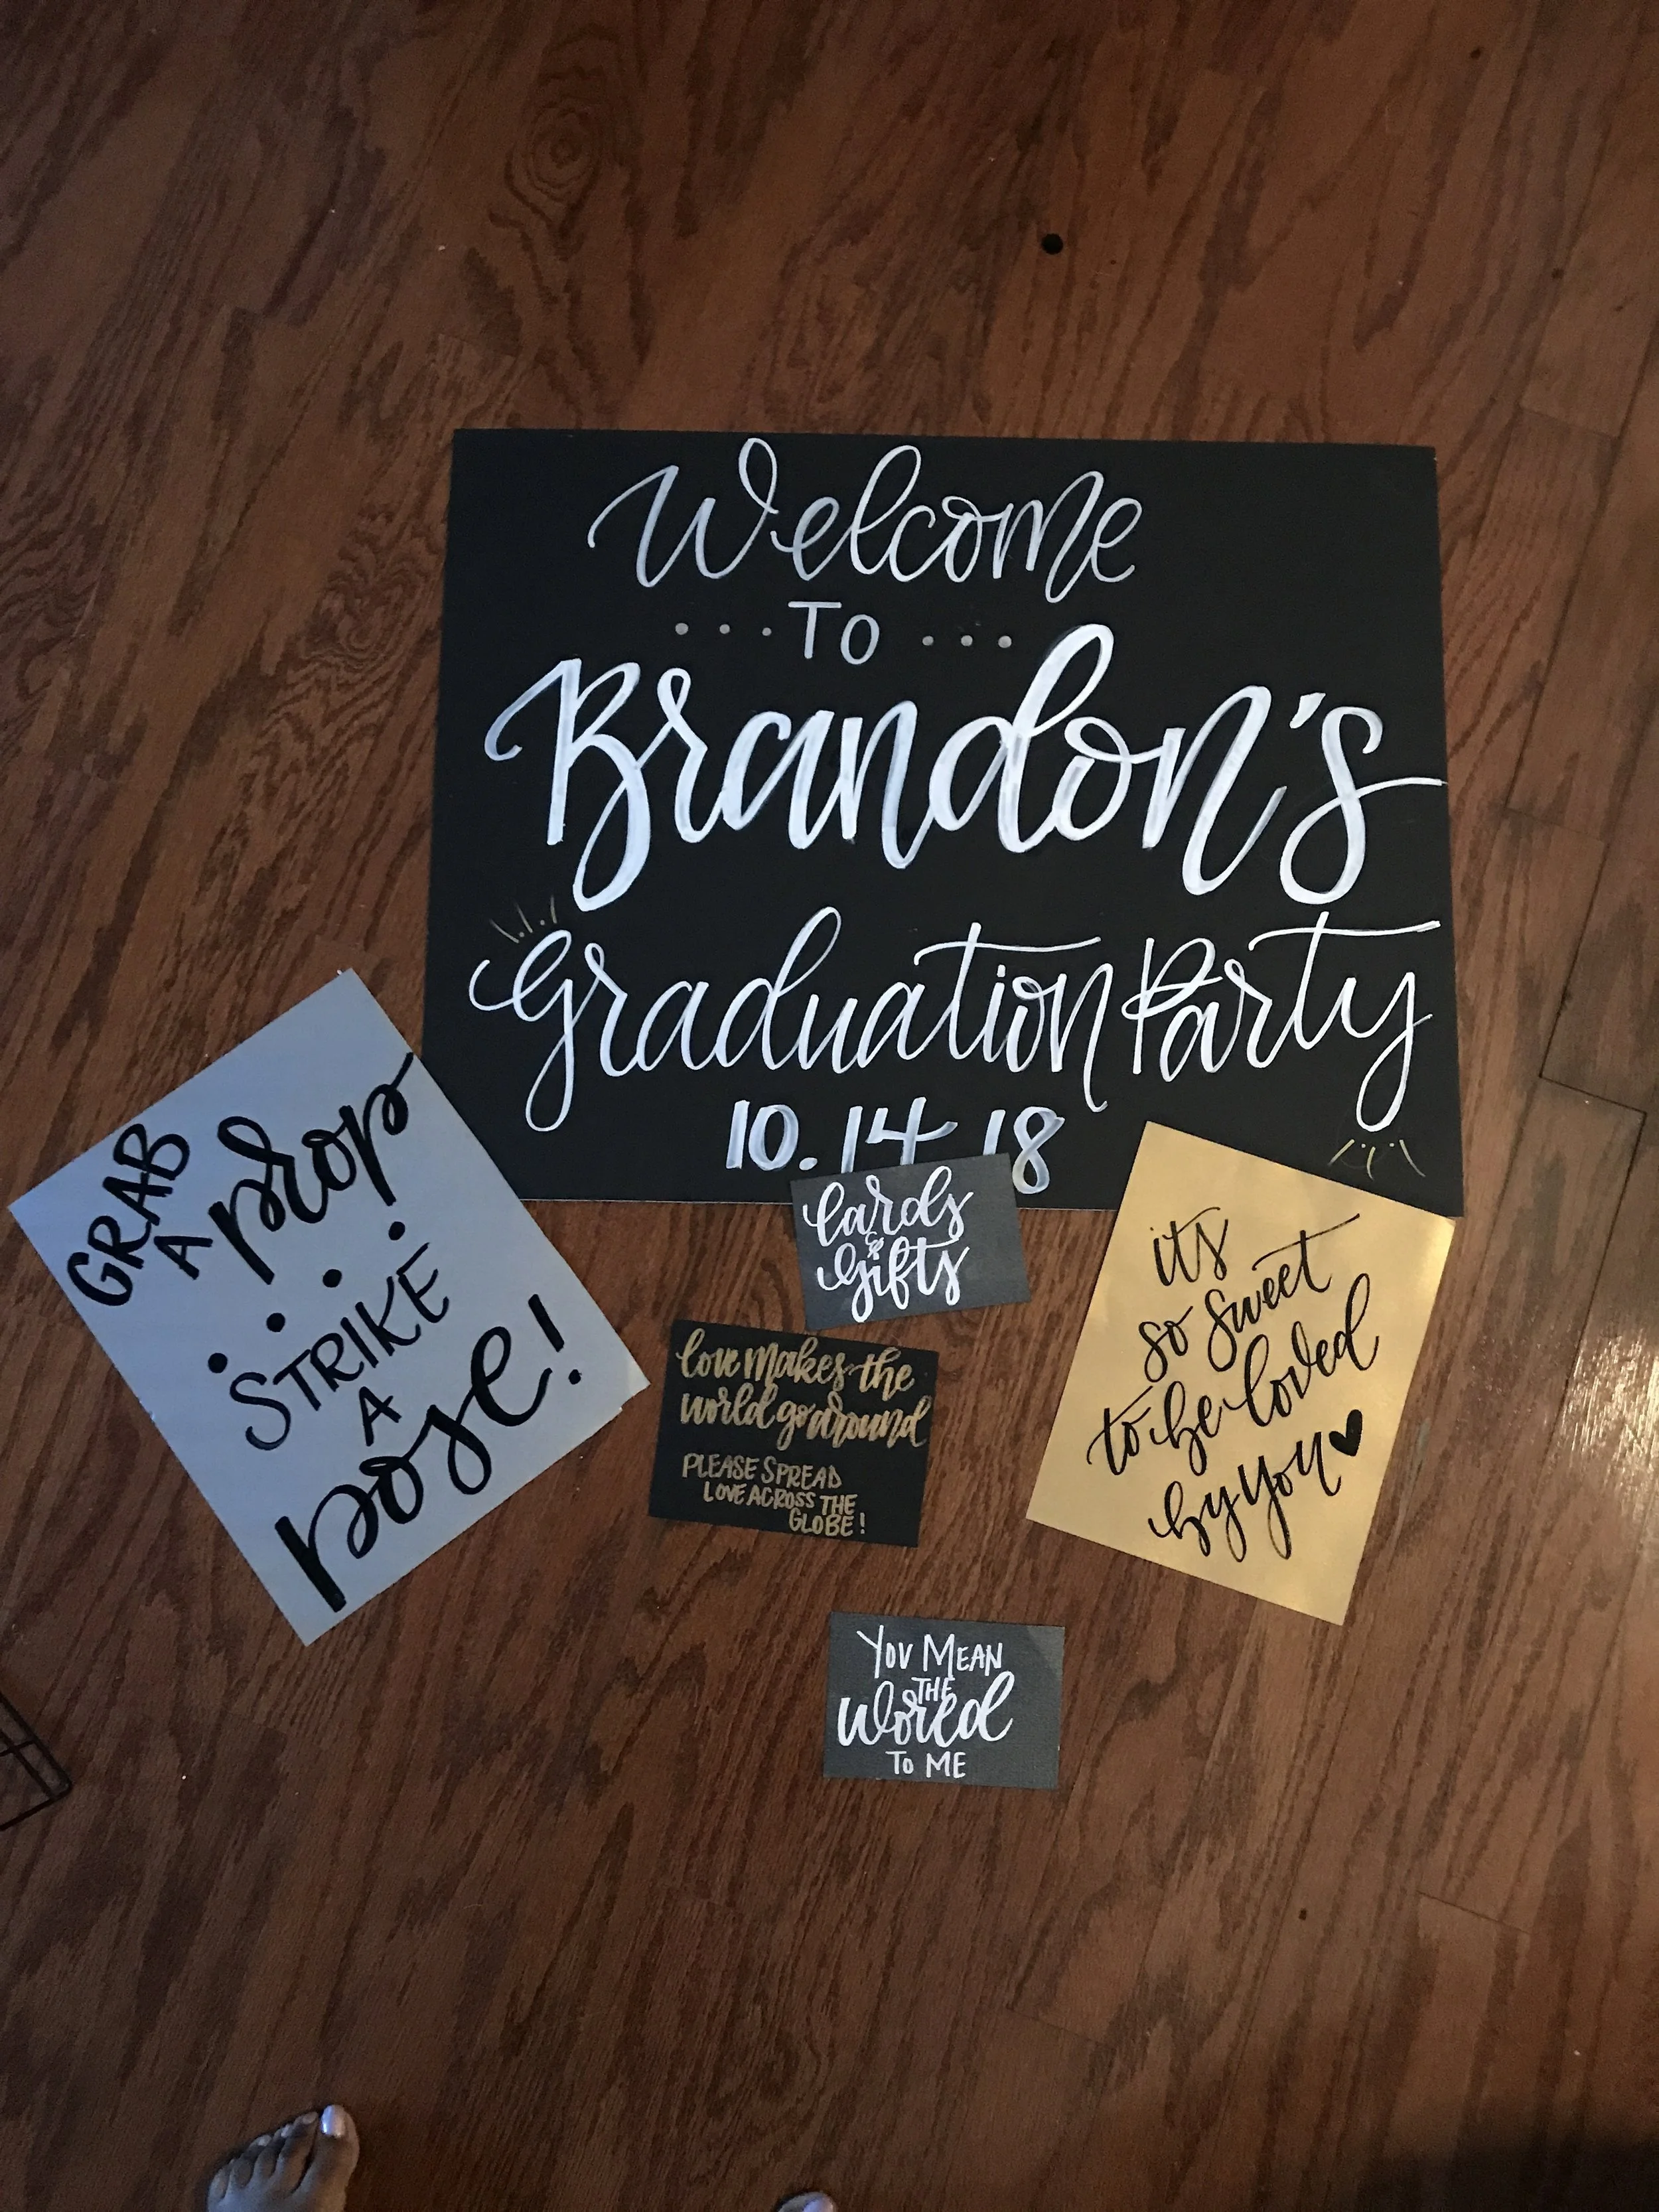 Welcome
... TO ...
Brandon's
Graduation Party
10.14.18
GRAB
A prop
....
STRIKE
A
pose!
Cards
&
Gifts
love makes the
world go around
PLEASE SPREAD
LOVE ACROSS THE
GLOBE!
its
so sweet
to be loved
by you ♥
YOU MEAN
THE
World
TO ME